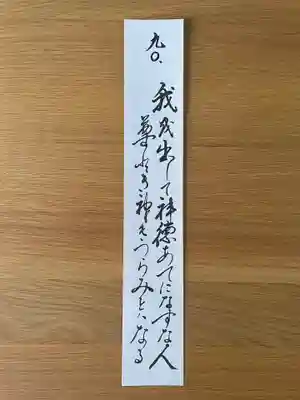 九〇、
我を出して神徳あてになすな人
尊き神もうらみとなる